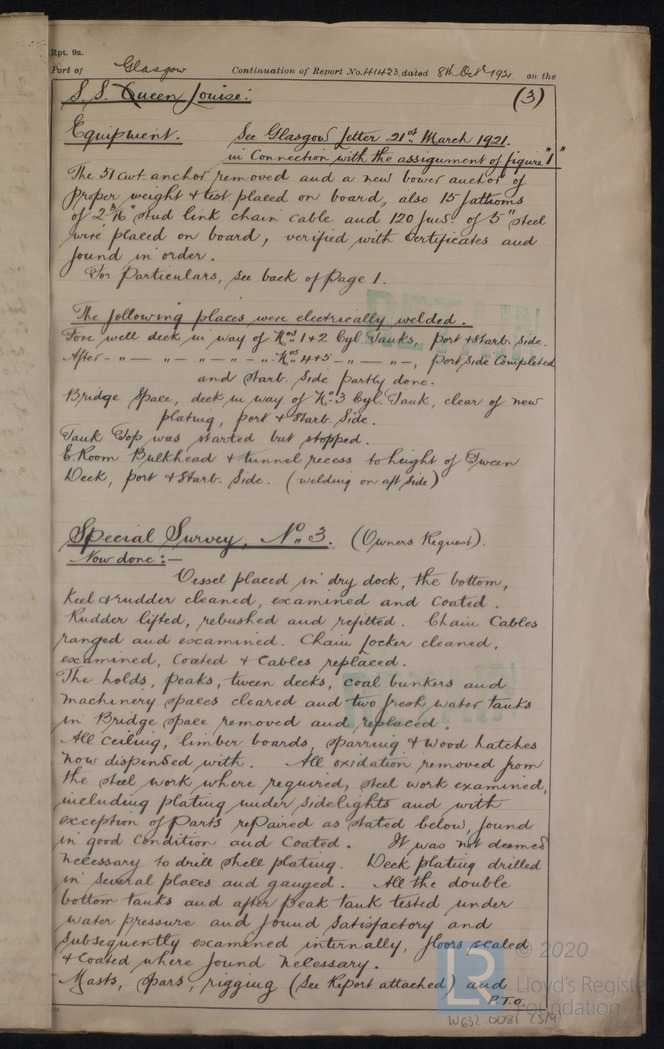 Rpt. 9a.
Port of Glasgow Continuation of Report No. 41423 dated 8th Oct 1921 on the
S.S. Queen Louise: (3)
Equipment. See Glasgow Letter 21st March 1921.
in Connection with the assignment of figure "1"
The 51 cwt. anchor removed and a new bower anchor of
proper weight & test placed on board, also 15 fathoms
of 2 3/16" stud link chain cable and 120 fms. of 5" steel
wire placed on board, verified with Certificates and
found in order.
For Particulars, see back of Page 1.
The following places were electrically welded.
Fore well deck in way of Nos 1 & 2 Cyl. Tanks, port & starb. side.
After - " — " — " — " — " - Nos 4 & 5 - " — " —, port side Completed
and starb. side partly done.
Bridge Space, deck in way of No. 3 Cyl. Tank, clear of new
plating, port & starb. side.
Tank Top was started but stopped.
E. Room Bulkhead & tunnel recess to height of Tween
Deck, port & starb. side. (welding on aft side)
Special Survey, No. 3. (Owners Request).
Now done:—
Vessel placed in dry dock, the bottom,
keel & rudder cleaned, examined and coated.
Rudder lifted, rebushed and refitted. Chain Cables
ranged and examined. Chain locker cleaned,
examined, Coated & Cables replaced.
The holds, peaks, tween decks, coal bunkers and
machinery spaces cleared and two fresh water tanks
in Bridge space removed and replaced.
All ceiling, limber boards, sparring & wood hatches
now dispensed with. All oxidation removed from
the steel work where required, steel work examined,
including plating under sidelights and with
exception of Parts repaired as stated below, found
in good condition and coated. It was not deemed
necessary to drill shell plating. Deck plating drilled
in several places and gauged. All the double
bottom tanks and after peak tank tested under
water pressure and found satisfactory and
subsequently examined internally, floors scaled
& coated where found necessary.
Masts, spars, rigging (See Report attached) and
P.T.O.
© 2020
LR
Lloyd's Register
Foundation
W632 0081 2314